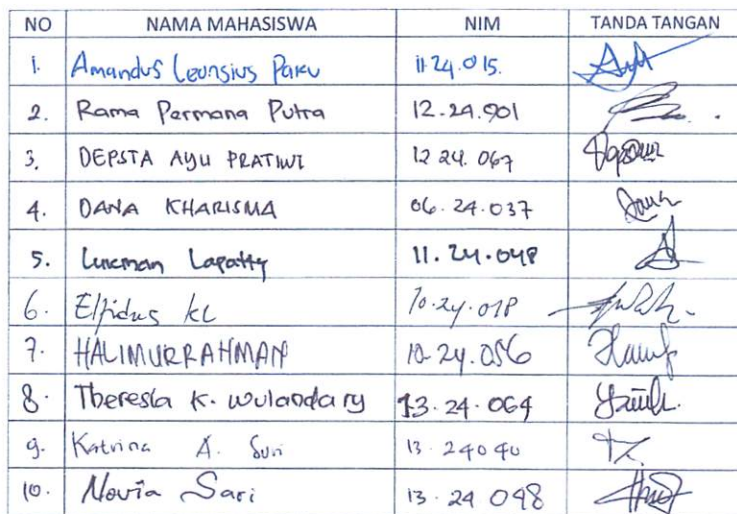 NO NAMA MAHASISWA NIM TANDA TANGAN
1. Amandus Leonsius Paru 11.24.015.
2. Rama Permana Putra 12.24.901
3. DEPSTA AYU PRATIWI 12 24. 067
4. DANA KHARISMA 06.24.037
5. Lukman Lapatty 11.24.048
6. Elfidus kl 10.24.018
7. HALIMURRAHMAN 10.24.056
8. Theresia K. Wulandary 13.24.064
9. Katrina A. Suri 13.24040
10. Novia Sari 13.24 048